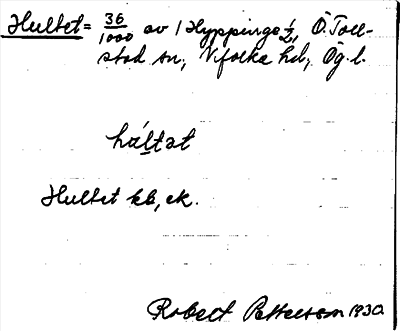 Hultet = 36/1000 av 1 Hyppinge ½, Ö. Toll-
stad sn, Vifolka hd, Ög. l.
háltət
Hultet kb, ek.
Robert Petterson 1930.